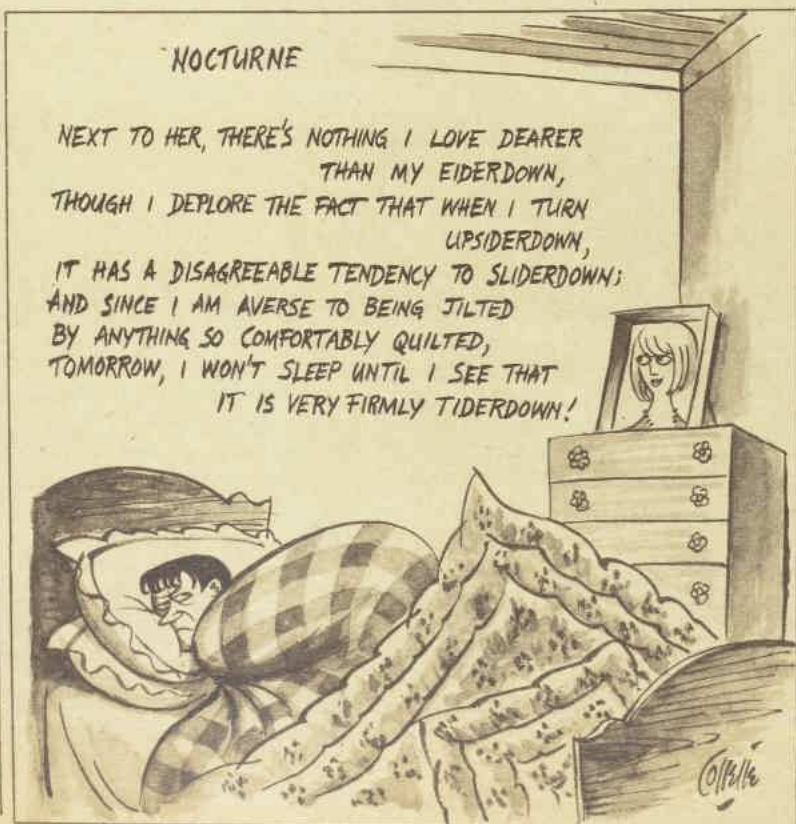 NOCTURNE
NEXT TO HER, THERE'S NOTHING I LOVE DEARER
THAN MY EIDERDOWN,
THOUGH I DEPLORE THE FACT THAT WHEN I TURN
UPSIDERDOWN,
IT HAS A DISAGREEABLE TENDENCY TO SLIDERDOWN;
AND SINCE I AM AVERSE TO BEING JILTED
BY ANYTHING SO COMFORTABLY QUILTED,
TOMORROW, I WON'T SLEEP UNTIL I SEE THAT
IT IS VERY FIRMLY TIDERDOWN!